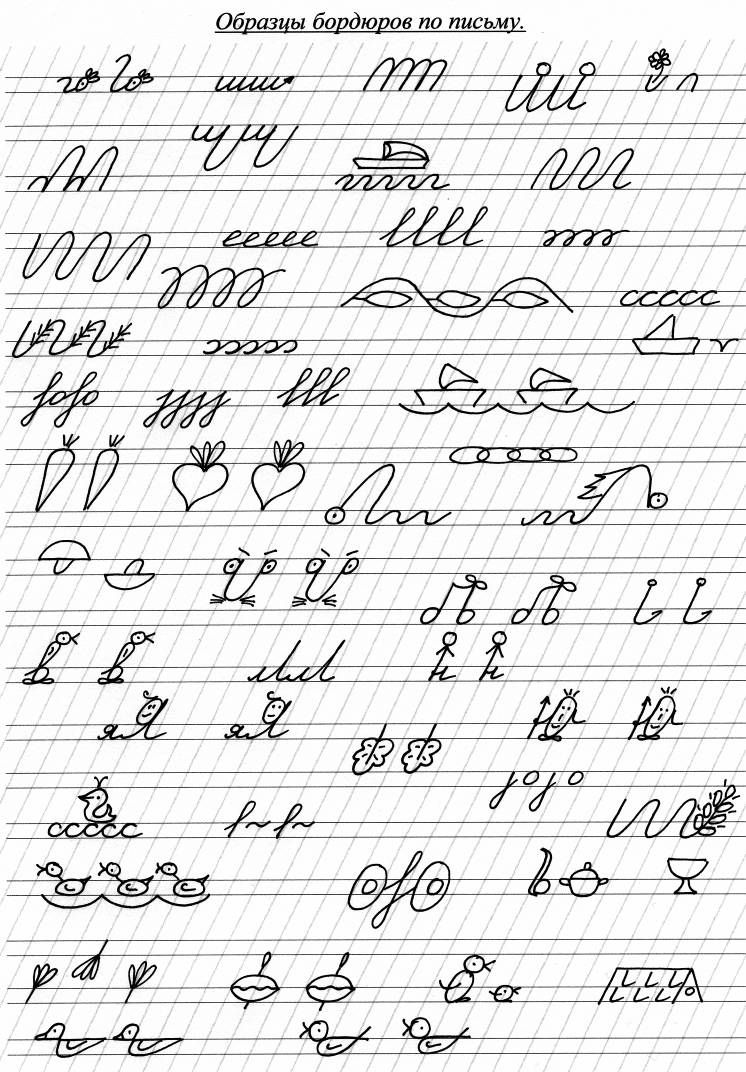 Образцы бордюров по письму.